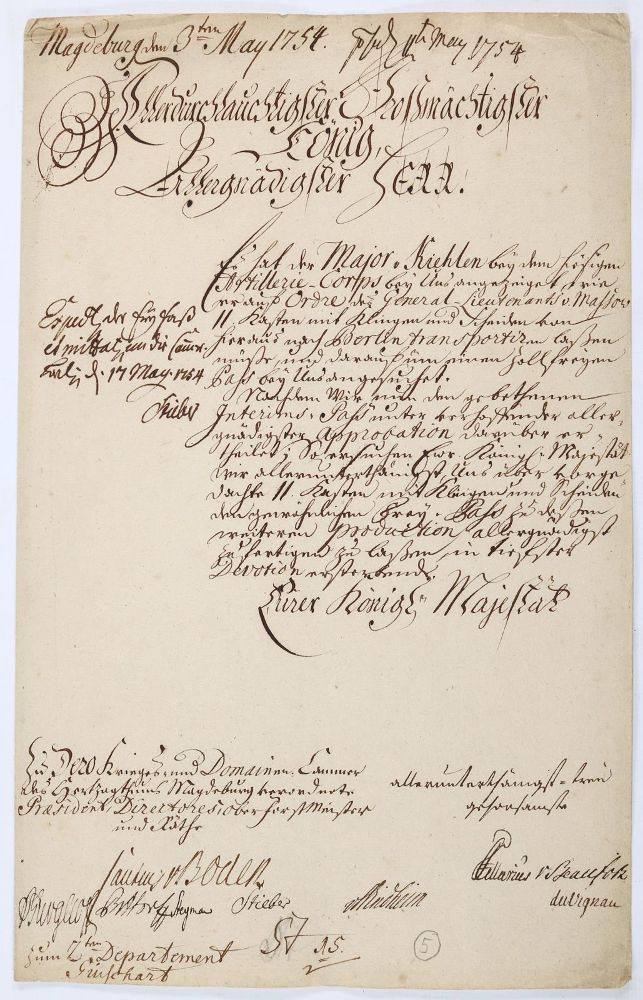 Magdeburg den 3ten May 1754.
11t May 1754
Allerdurchlauchtigster Großmächtigster
König,
Allergnädigster Herr.
Es hat der Major v. Kiehlen bey dem hiesigen
Artillerie-Corps bey Uns angezeiget, wie
er auf Ordre des General-Lieutenants v. Massow
11 Kasten mit Klingen und Scheiden von
hieraus nach Berlin transportiren laßen
müße und darauf um einen Zollfreyen
Paß bey Uns angesuchet.
Nachdem Wir nun den gebethenen
Interims-Paß unter verhoffender aller-
gnädigster Approbation darüber er-
theilet; So ersuchen Ewr. Königl. Majestät
wir allerunterthänigst, Uns über vorge-
dachte 11 Kasten mit Klingen und Scheiden
den gewöhnlichen Frey-Paß zu deßen
weiteren Production allergnädigst
zufertigen zu laßen, in tiefster
Devotion ersterbende
Eurer Königl. Majestät
Exped. der Frey Paß
et mittatur an die Camer
d. 17 May. 1754
Stieber
Zu Dero Krieges- und Domainen-Cammer
des Hertzogthums Magdeburg verordnete
Præsident, Directores, Oberforst Meister
und Räthe
allerunterthänigst-treu
gehorsamste
v. Boden
Hilarius v. Beaufort
Stegman Stieber
duVignau
zum 2ten Departement
57 15.
5